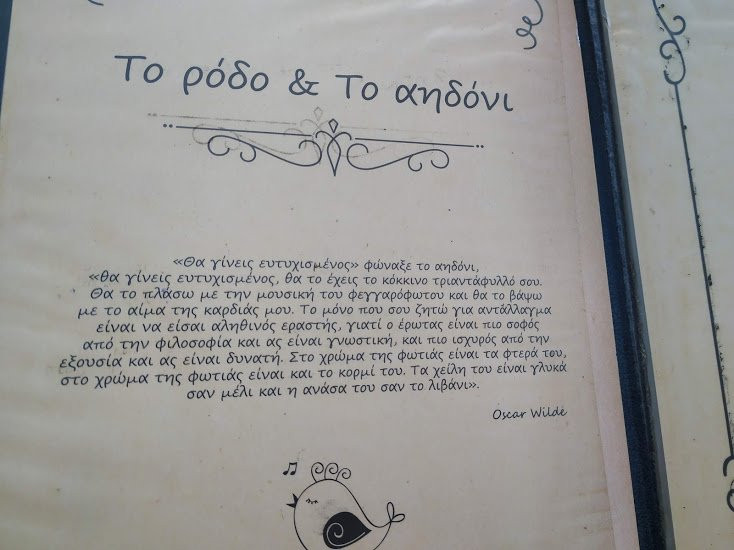 Το ρόδο & Το αηδόνι
«Θα γίνεις ευτυχισμένος» φώναξε το αηδόνι,
«θα γίνεις ευτυχισμένος, θα το έχεις το κόκκινο τριαντάφυλλό σου.
Θα το πλάσω με την μουσική του φεγγαρόφωτου και θα το βάψω
με το αίμα της καρδιάς μου. Το μόνο που σου ζητώ για αντάλλαγμα
είναι να είσαι αληθινός εραστής, γιατί ο έρωτας είναι πιο σοφός
από την φιλοσοφία και ας είναι γνωστική, και πιο ισχυρός από την
εξουσία και ας είναι δυνατή. Στο χρώμα της φωτιάς είναι τα φτερά του,
στο χρώμα της φωτιάς είναι και το κορμί του. Τα χείλη του είναι γλυκά
σαν μέλι και η ανάσα του σαν το λιβάνι».
Oscar Wilde